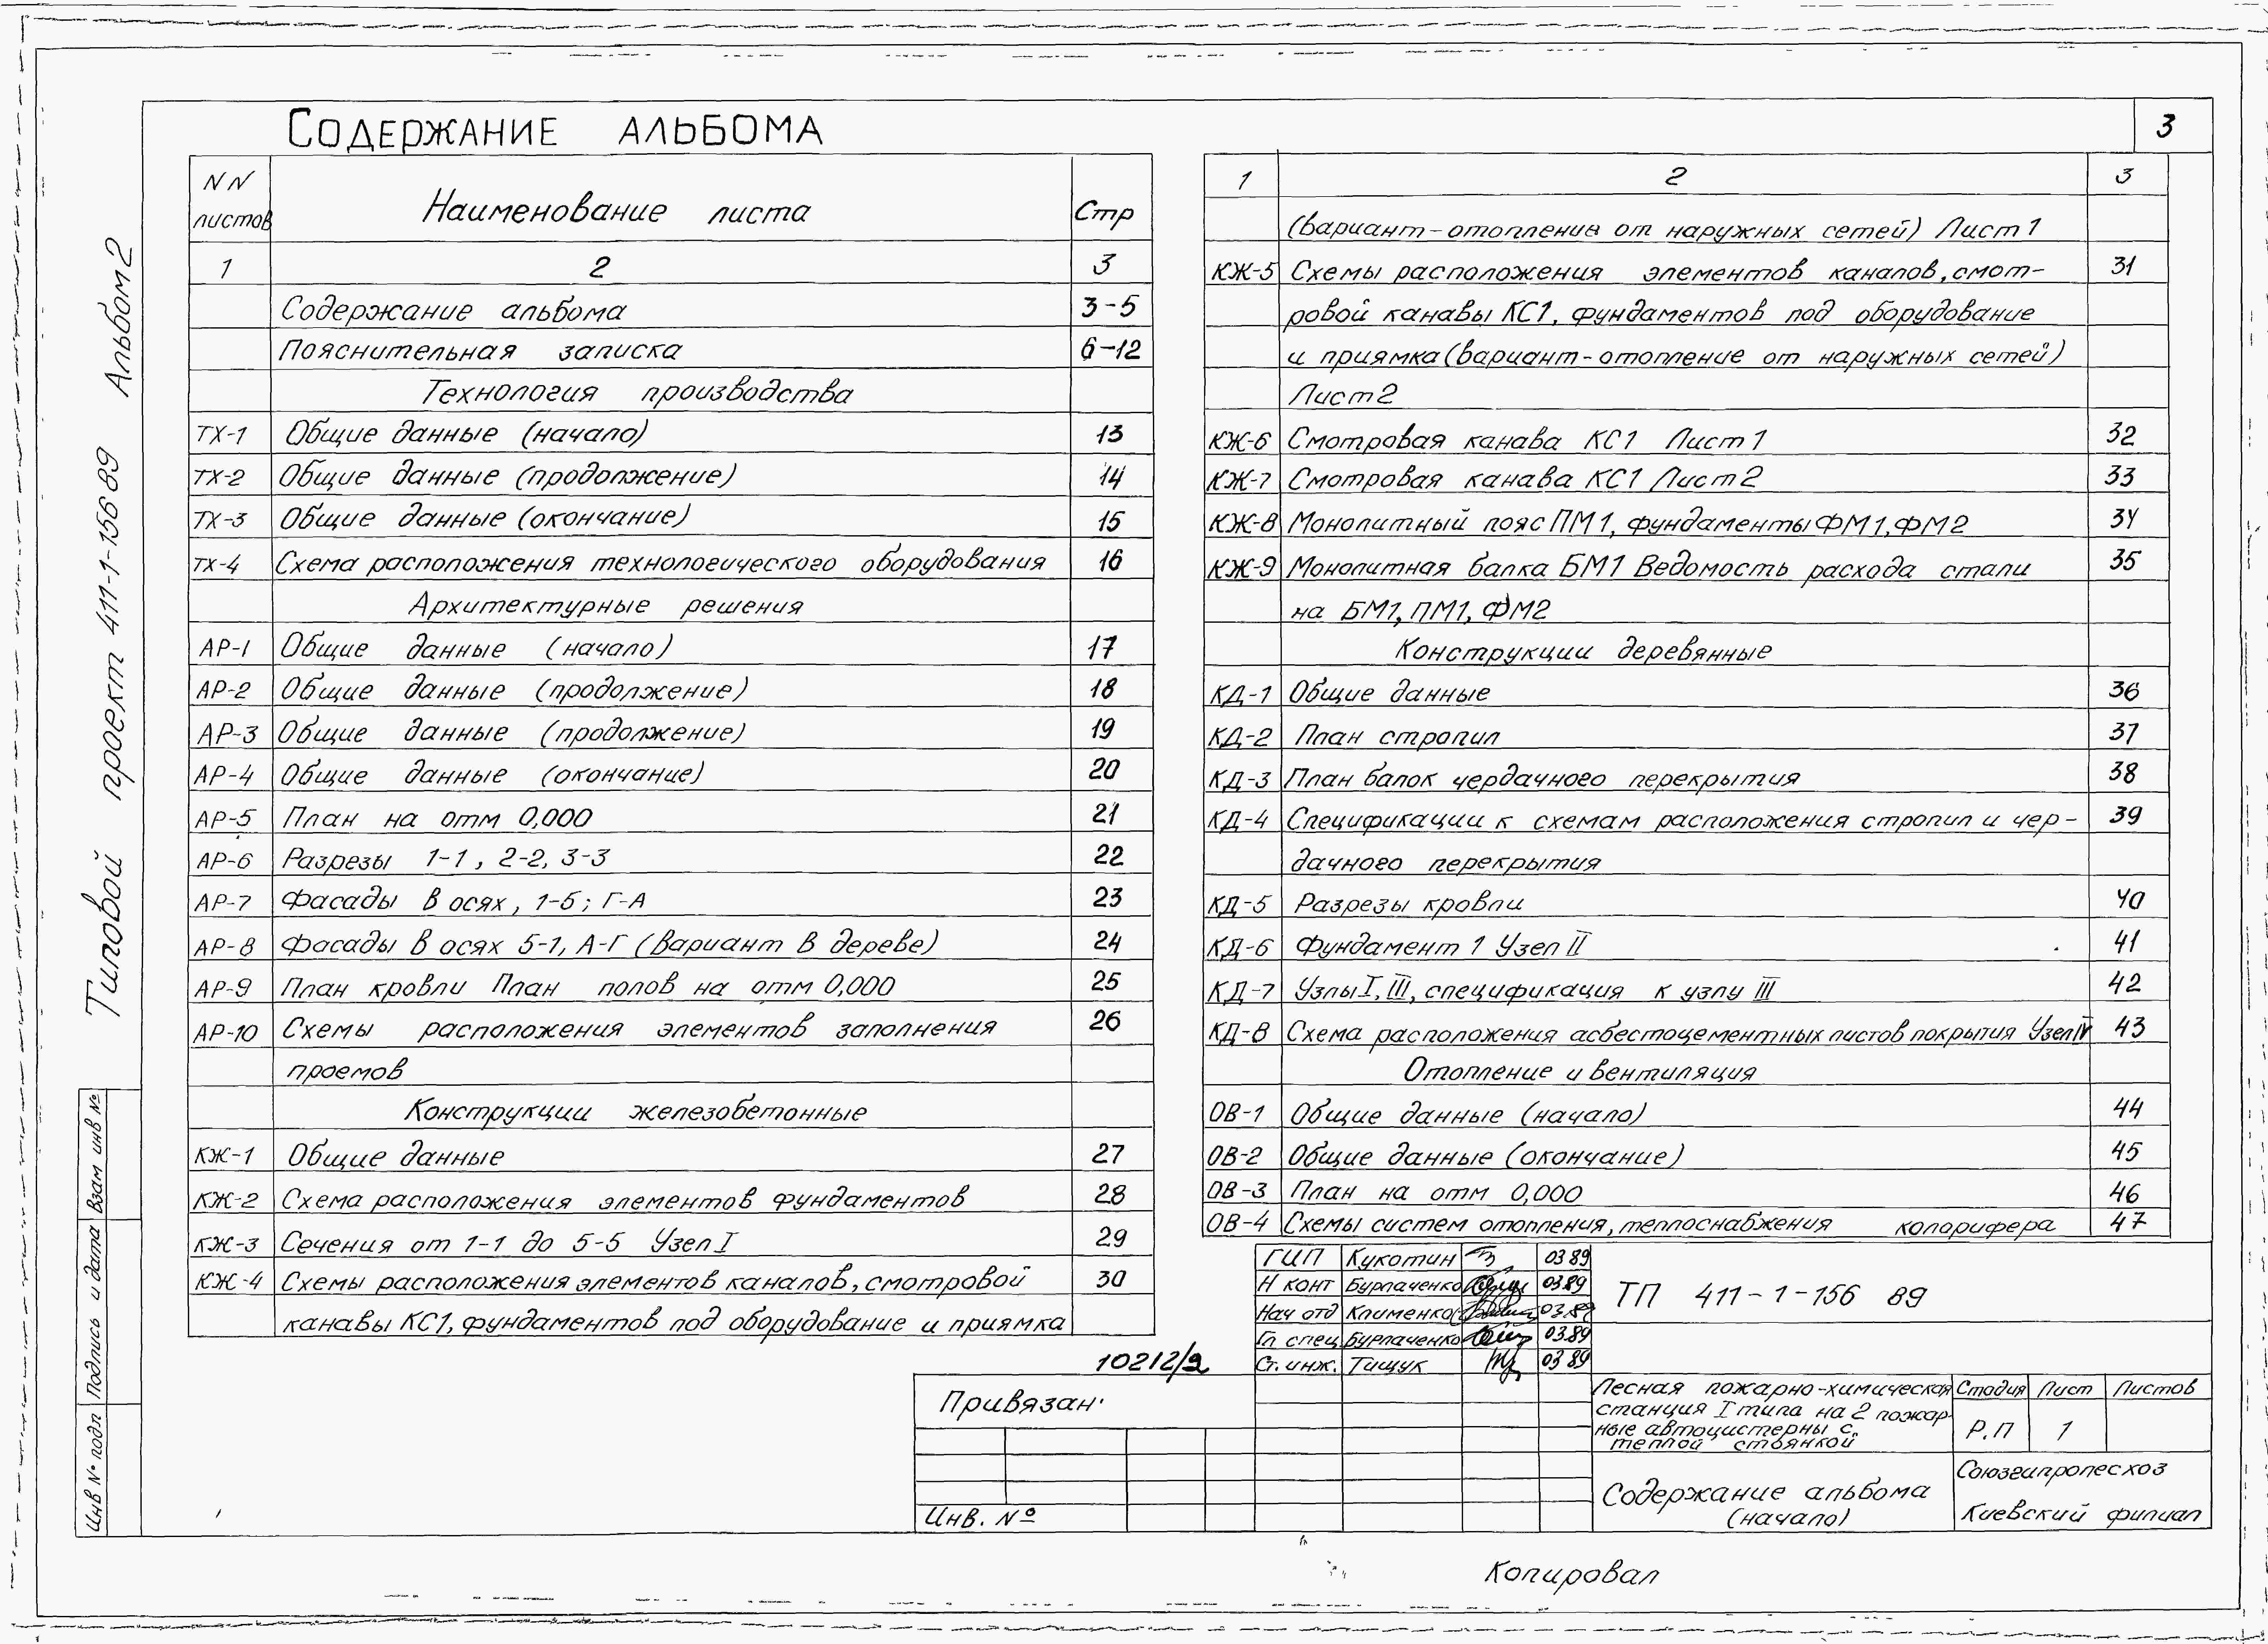 3
Содержание альбома
NN листов Наименование листа Стр
1 2 3
Содержание альбома 3-5
Пояснительная записка 6-12
Технология производства
ТХ-1 Общие данные (начало) 13
ТХ-2 Общие данные (продолжение) 14
ТХ-3 Общие данные (окончание) 15
ТХ-4 Схема расположения технологического оборудования 16
Архитектурные решения
АР-1 Общие данные (начало) 17
АР-2 Общие данные (продолжение) 18
АР-3 Общие данные (продолжение) 19
АР-4 Общие данные (окончание) 20
АР-5 План на отм 0,000 21
АР-6 Разрезы 1-1, 2-2, 3-3 22
АР-7 Фасады в осях, 1-5; Г-А 23
АР-8 Фасады в осях 5-1, А-Г (вариант в дереве) 24
АР-9 План кровли План полов на отм 0,000 25
АР-10 Схемы расположения элементов заполнения 26
проемов
Конструкции железобетонные
КЖ-1 Общие данные 27
КЖ-2 Схема расположения элементов фундаментов 28
КЖ-3 Сечения от 1-1 до 5-5 Узел I 29
КЖ-4 Схемы расположения элементов каналов, смотровой 30
канавы КС1, фундаментов под оборудование и приямка
1 2 3
(вариант-отопление от наружных сетей) Лист 1
КЖ-5 Схемы расположения элементов каналов, смот- 31
ровой канавы КС1, фундаментов под оборудование
и приямка (вариант-отопление от наружных сетей)
Лист 2
КЖ-6 Смотровая канава КС1 Лист 1 32
КЖ-7 Смотровая канава КС1 Лист 2 33
КЖ-8 Монолитный пояс ПМ1, фундаменты ФМ1, ФМ2 34
КЖ-9 Монолитная балка БМ1 Ведомость расхода стали 35
на БМ1, ПМ1, ФМ2
Конструкции деревянные
КД-1 Общие данные 36
КД-2 План стропил 37
КД-3 План балок чердачного перекрытия 38
КД-4 Спецификации к схемам расположения стропил и чер- 39
дачного перекрытия
КД-5 Разрезы кровли 40
КД-6 Фундамент 1 Узел II 41
КД-7 Узлы I, III, спецификация к узлу III 42
КД-8 Схема расположения асбестоцементных листов покрытия Узел IV 43
Отопление и вентиляция
ОВ-1 Общие данные (начало) 44
ОВ-2 Общие данные (окончание) 45
ОВ-3 План на отм 0,000 46
ОВ-4 Схемы систем отопления, теплоснабжения калорифера 47
ГИП Кукотин 03 89
Н конт Бурлаченко 03.89
Нач отд Клименко 03.89
Гл спец Бурлаченко 03.89
Ст. инж. Тищук 03 89
ТП 411-1-156 89
10212/2
Привязан
Инв. №
Лесная пожарно-химическая
станция I типа на 2 пожар-
ные автоцистерны с
теплой стоянкой
Стадия Лист Листов
Р.П 1
Содержание альбома
(начало)
Союзгипролесхоз
Киевский филиал
Копировал
Типовой проект 411-1-156 89 Альбом 2
Инв № подл Подпись и дата Взам инв №